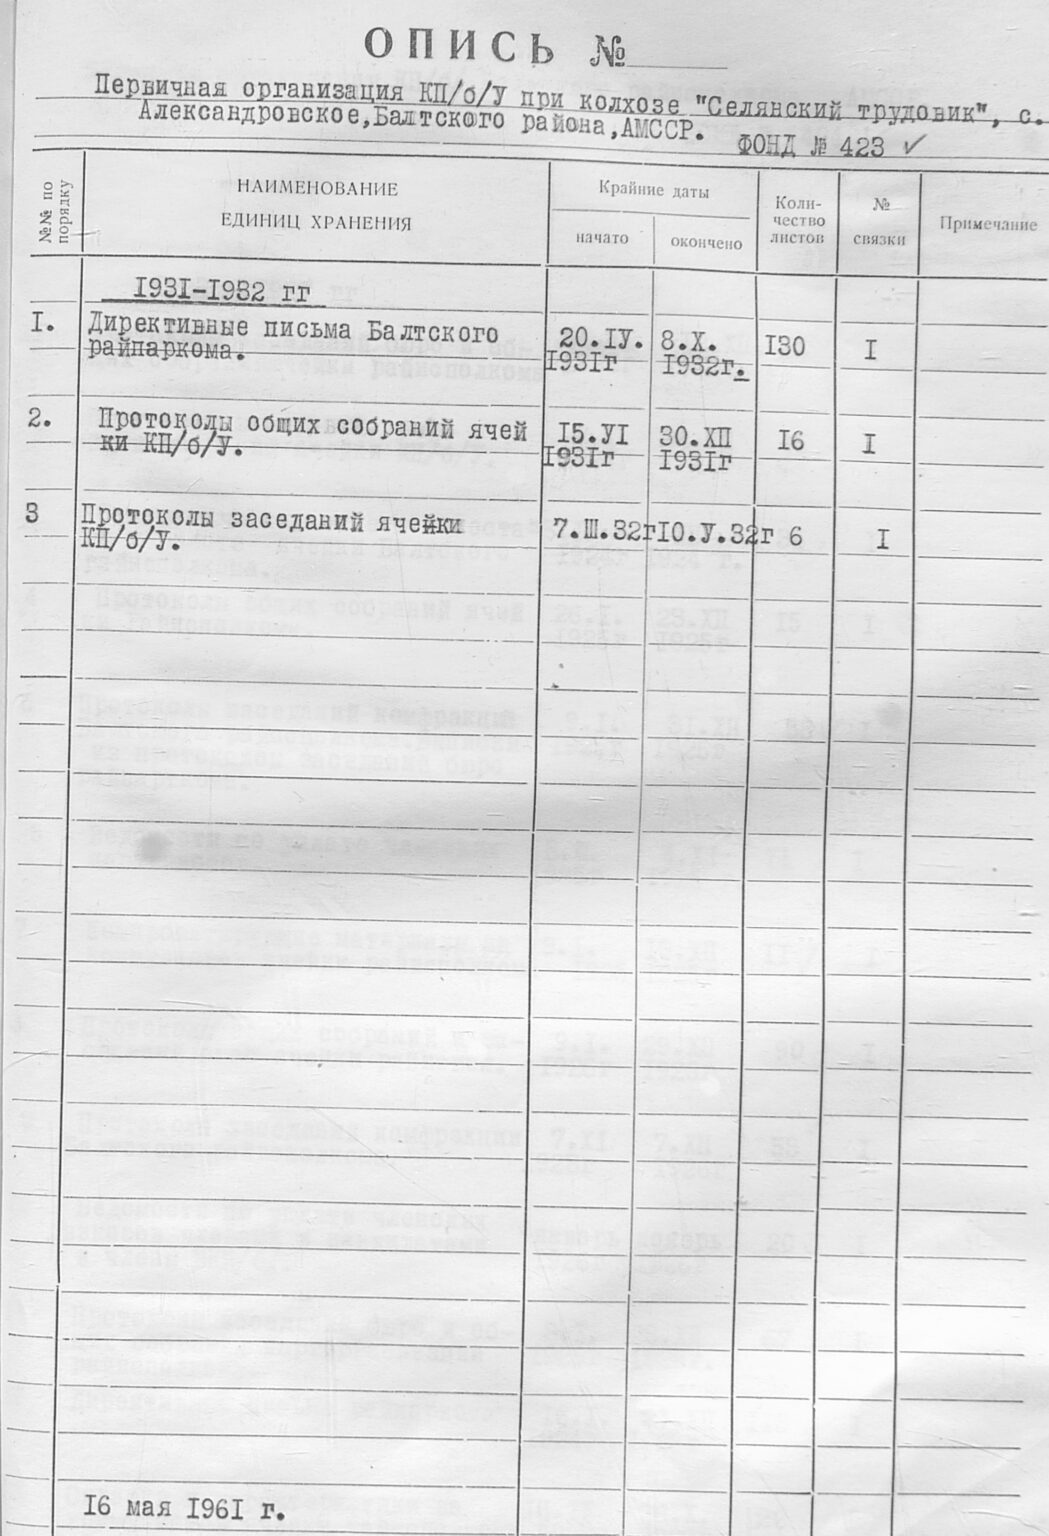 ОПИСЬ №
Первичная организация КП/б/У при колхозе "Селянский трудовик", с.
Александровское, Балтского района, АМССР.
ФОНД № 423 ✓
№№ по порядку
НАИМЕНОВАНИЕ
ЕДИНИЦ ХРАНЕНИЯ
Крайние даты
начато
окончено
Коли-
чество
листов
№
связки
Примечание
1931-1932 гг
1. Директивные письма Балтского 20.IУ. 8.X. 130 I
райпаркома. 1931г 1932г.
2. Протоколы общих собраний ячей 15.УI 30.XII 16 I
ки КП/б/У. 1931г 1931г
3 Протоколы заседаний ячейки 7.Ш.32г 10.У.32г 6 I
КП/б/У.
16 мая 1961 г.